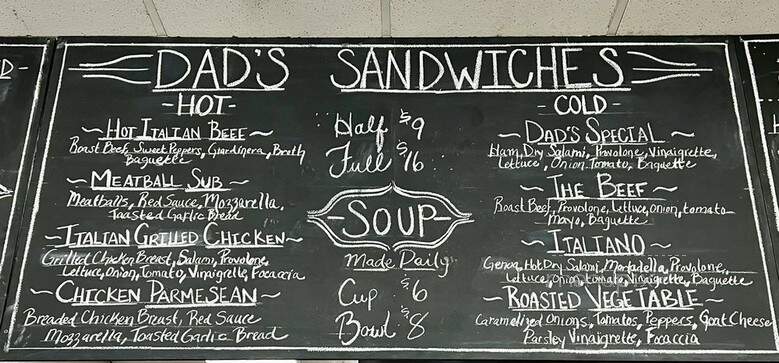 DAD'S SANDWICHES
-HOT-
~HOT ITALIAN BEEF~
Roast Beef, Sweet Peppers, Giardinera, Broth
Baguette
~MEATBALL SUB~
Meatballs, Red Sauce, Mozzarella,
Toasted Garlic Bread
~ITALIAN GRILLED CHICKEN~
Grilled Chicken Breast, Salami, Provolone,
Lettuce, Onion, Tomato, Vinaigrette, Focaccia
~CHICKEN PARMESEAN~
Breaded Chicken Breast, Red Sauce
Mozzarella, Toasted Garlic Bread
Half $9
Full $16
-SOUP-
Made Daily
Cup $6
Bowl $8
-COLD-
~DAD'S SPECIAL~
Ham, Dry Salami, Provolone, Vinaigrette,
Lettuce, Onion, Tomato, Baguette
~THE BEEF~
Roast Beef, Provolone, Lettuce, Onion, tomato
Mayo, Baguette
~ITALIANO~
Genoa, Hot Dry Salami, Mortadella, Provolone,
Lettuce, Onion, tomato, Vinaigrette, Baguette
~ROASTED VEGETABLE~
Caramelized Onions, Tomatos, Peppers, Goat Cheese
Parsley Vinaigrette, Focaccia